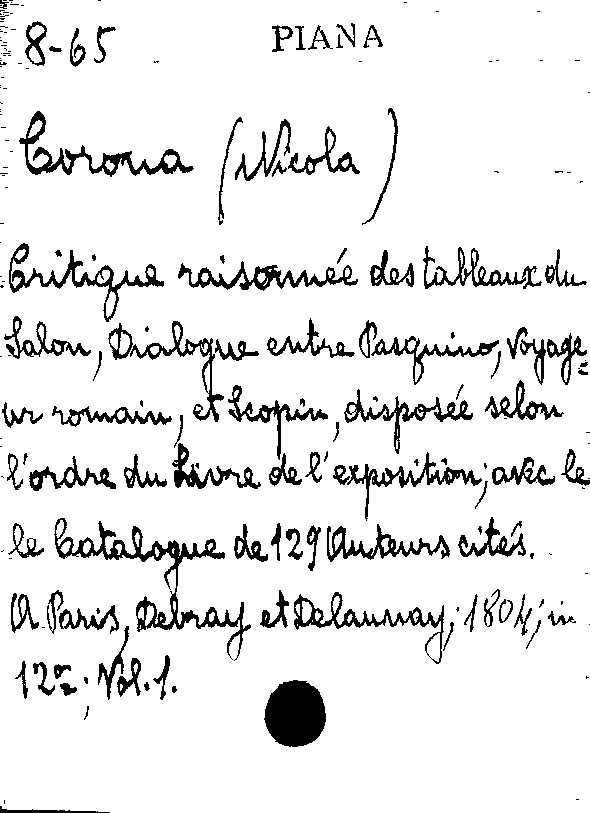 8-65 PIANA
Corona (Nicola)
Critique raisonnée des tableaux du
Salon, Dialogue entre Pasquino, voyage=
ur romain, et Scopin, disposée selon
l'ordre du Livre de l'exposition; avec le
le Catalogue de 129 Auteurs cités.
A Paris, Debray et Delaunay; 1804; in
12º; Vol. 1.